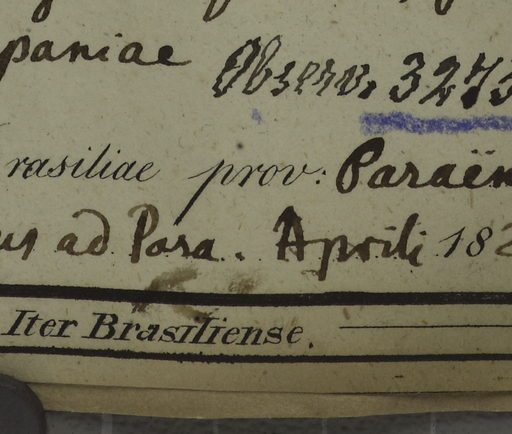 paniae Observ. 3273
rasiliae prov: Paraën
us ad Para. Aprili 182
Iter Brasiliense.